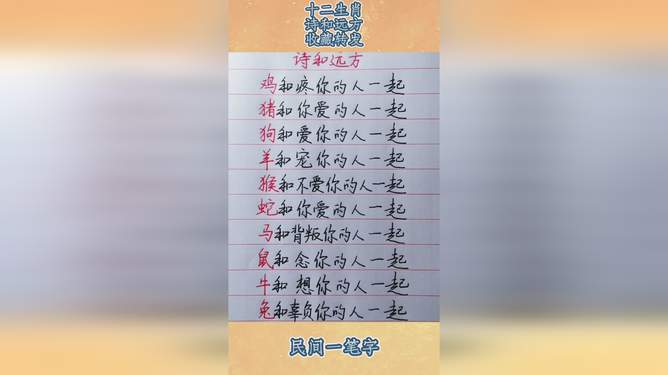 十二生肖
诗和远方
收藏转发
诗和远方
鸡和疼你的人一起
猪和你爱的人一起
狗和爱你的人一起
羊和宠你的人一起
猴和不爱你的人一起
蛇和你爱的人一起
马和背叛你的人一起
鼠和念你的人一起
牛和想你的人一起
兔和辜负你的人一起
民间一笔字